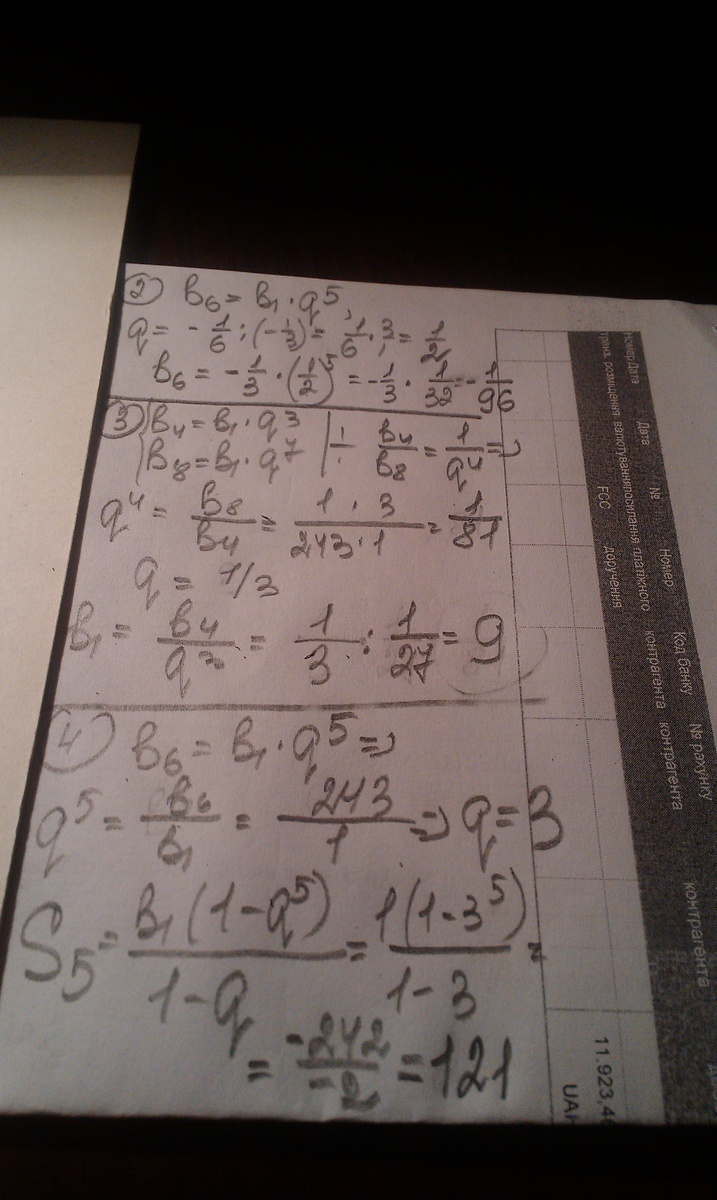 ② b₆ = b₁ · q⁵
q = - 1/6 : (-1/3) = 1/6 · 3/1 = 1/2
b₆ = -1/3 · (1/2)⁵ = -1/3 · 1/32 = -1/96
③ { b₄ = b₁ · q³
b₈ = b₁ · q⁷ | ÷ b₄/b₈ = 1/q⁴ =>
q⁴ = b₈/b₄ = 1 · 3/243 · 1 = 1/81
q = 1/3
b₁ = b₄/q³ = 1/3 : 1/27 = 9
④ b₆ = b₁ · q⁵ =>
q⁵ = b₆/b₁ = 243/1 => q = 3
S₅ = b₁(1-q⁵)/1-q = 1(1-3⁵)/1-3 =
= -242/-2 = 121
Номер
Дата
Дата
№
Номер
Код банку
№ рахунку
розміщення
валютування
посилання
платіжного
контрагента
контрагента
контрагента
FCC
доручення
11.923,4
UAH